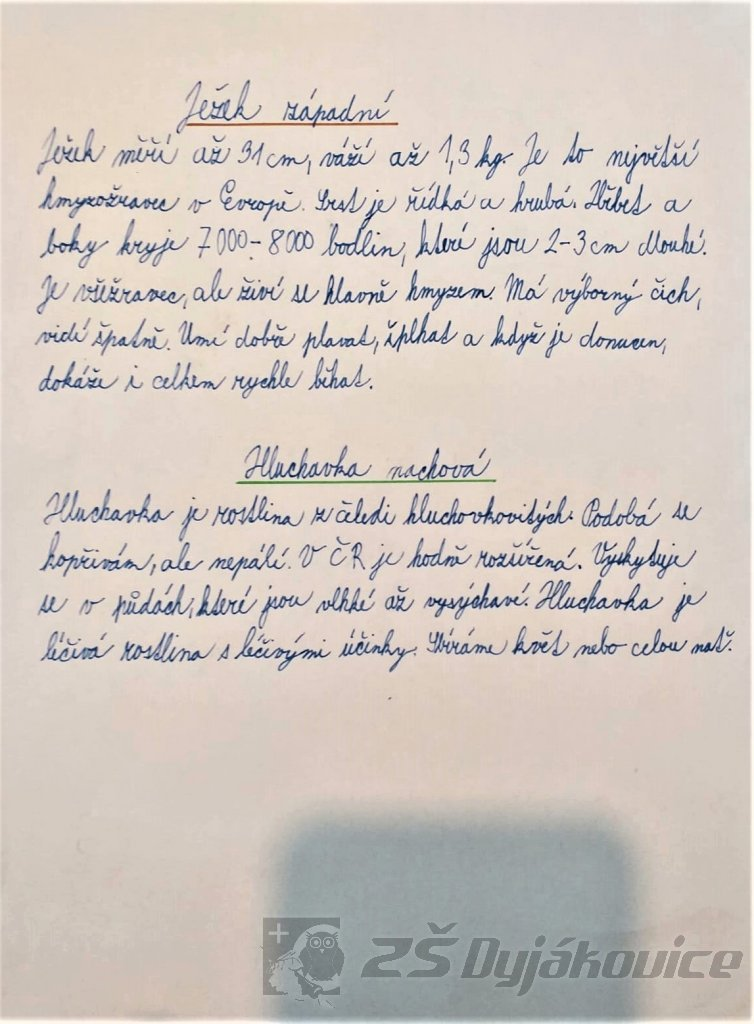 Ježek západní
Ježek měří až 31 cm, váží až 1,3 kg. Je to největší
hmyzožravec v Evropě. Srst je řídká a hrubá. Hřbet a
boky kryje 7 000 – 8 000 bodlin, které jsou 2-3 cm dlouhé.
Je všežravec, ale živí se hlavně hmyzem. Má výborný čich,
vidí špatně. Umí dobře plavat, šplhat a když je donucen,
dokáže i celkem rychle běhat.
Hluchavka nachová
Hluchavka je rostlina z čeledi hluchovkovitých. Podobá se
kopřivám, ale nepálí. V ČR je hodně rozšířená. Vyskytuje
se v půdách, které jsou vlhké až vysýchavé. Hluchavka je
léčivá rostlina s léčivými účinky. Sbíráme květ nebo celou nať.
ZŠ Dyjákovice